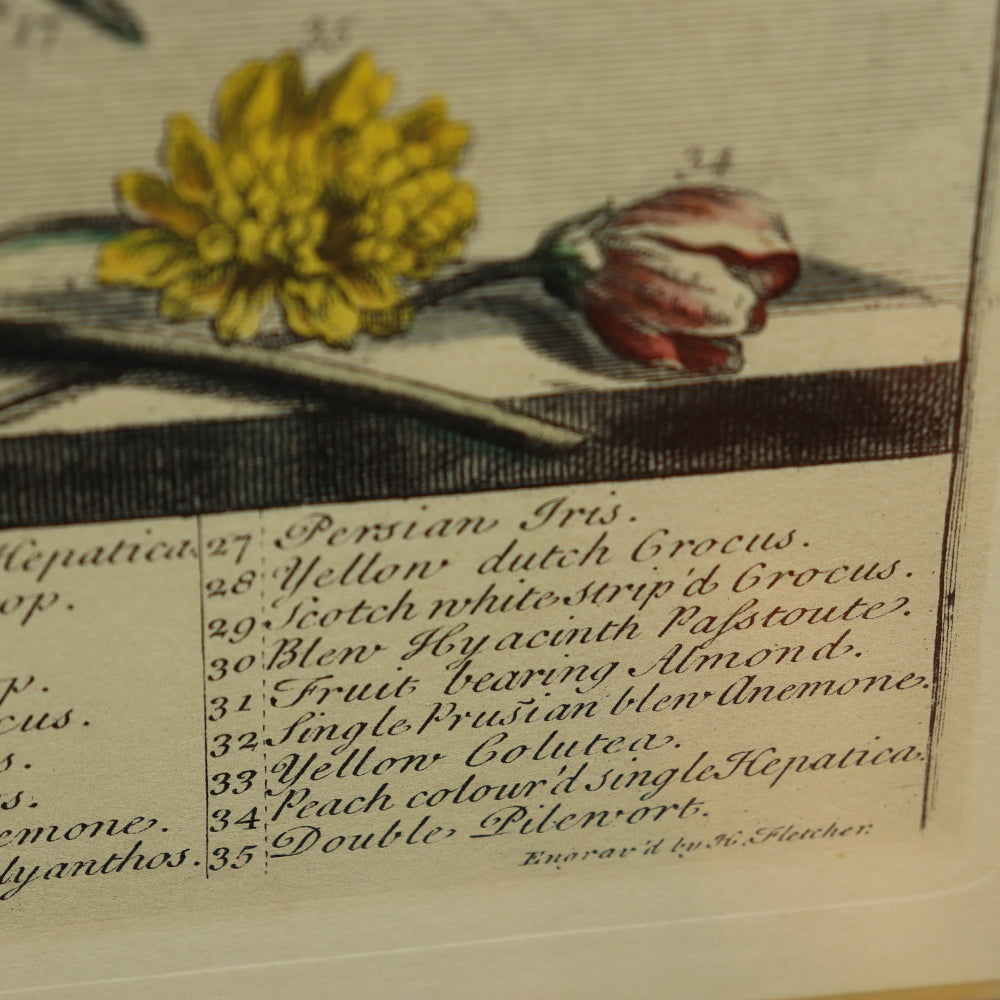 17
35
34
Hepatica.
op.
p.
cus.
s.
s.
emone.
lyanthos.
27 Persian Iris.
28 Yellow dutch Crocus.
29 Scotch white strip'd Crocus.
30 Blew Hyacinth Paſstoute.
31 Fruit bearing Almond.
32 Single Prusian blew Anemone.
33 Yellow Colutea.
34 Peach colour'd single Hepatica.
35 Double Pilewort.
Engrav'd by H. Fletcher.